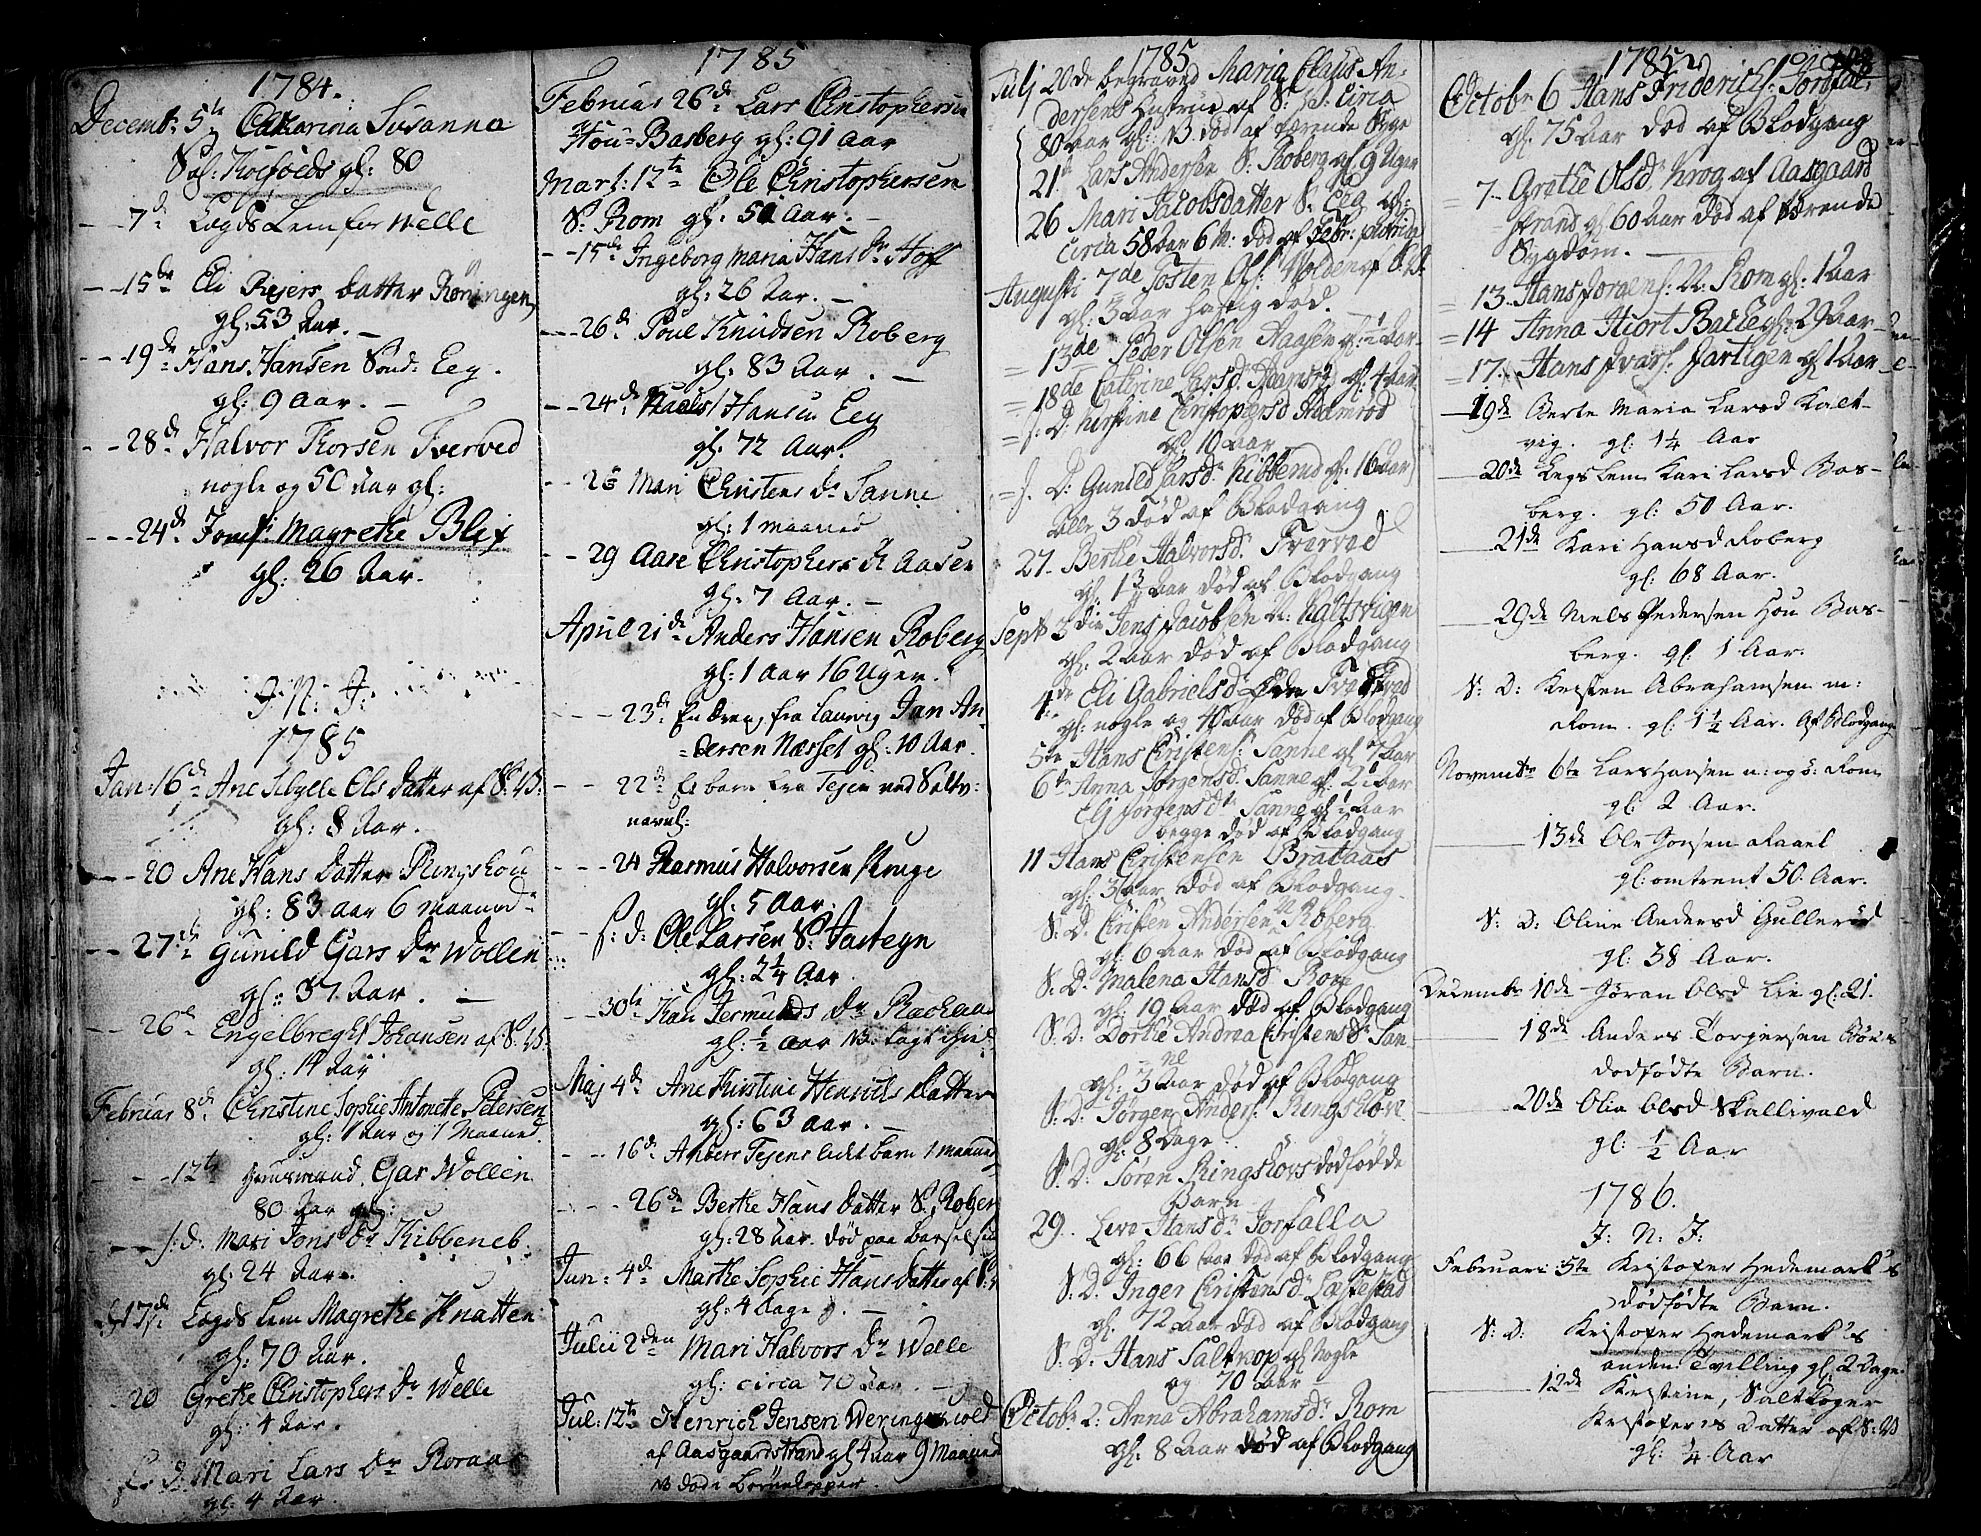 1784.
Decembr: 5te Catharina Susanna
Sal: Kolfolds gl: 80
- - 7de Lægds Lem for Welle
- - 15de Eli Rejers datter Röningen
gl: 53 Aar. -
- - 19de Hans Hansen Sönd: Eeg.
gl: 9 Aar. -
- - 28de Halvor Thorsen Tverved
nogle og 50 Aar gl:
- - - 24de Jomf: Magrethe Blix
gl: 26 Aar.
J: N: J:
1785
Jan: 16de Ane Sibylle Ols datter af S: W:
gl: 8 Aar.
- - - 20 Ane Hans datter Ringshou
gl: 83 aar 6 maaned
- - 27de Gunild Gars Dr Wollen
gl: 37 Aar. -
- - 26de Engelbreght Johansen af S: W:
gl: 14 Dage
Februar 8de Christine Sophie Antonette Petersen
gl: 1 Aar og 1 Maaned.
- - - 12te Huusmand Gar Wollen
80 Aar gl:
- - - s: d: Mari Jons Dr Kibbeneb.
gl: 24 Aar.
17de Lægds Lem Magrethe Knatten
gl: 70 Aar.
20 Grethe Christophers Dr Welle
gl: 4 Aar.
s: d: Mari Lars Dr Roraas
gl: 4 Aar.
1785
Februar 26de Lars Christophersen
Hou = Basberg gl: 91 aar
Mart: 12te Ole Christophersen
S: Rom gl: 50 Aar. -
- - 15de Ingeborg Maria Hans Dr Hoff
gl: 26 Aar. -
- - - 26de Poul Knudsen Roberg
gl: 83 Aar. -
- - - 24de Hansen Eeg
gl: 72 Aar.
- - 26 Mari Christens Dr Sanne
gl: 1 maaned
- - 29 Aase Christophers Dr Aasen
gl: 7 Aar. -
April 21de Anders Hansen Roberg
gl: 1 Aar 16 Uger.
- - - 23de En Dreng fra Laurvig Jan An-
= dersen Næsset gl: 10 Aar.
- - 22de Et barn fra Tejen ved Saltv:
navnl:
- - - 24 Rasmus Halvorsen Kruge
gl: 5 Aar.
- - s: d: Ole Larsen S: Jarteyn
gl: 2 1/4 Aar.
- - 30te Kari Germunds Dr Rachaas
gl: 1/2 aar NB: lagt ihiel.
Maj 4de Ane Kirstine Henrichs datter
gl: 63 aar. -
- - - 16de Anders Tejens lidet barn 1 maaned
- - - 26de Berthe Hans datter S: Roberg
gl: 28 Aar. død paa Barselseng
Jun: 4de Marthe Sophie Hans datter af S: W
gl: 4 dage. -
Julii 2den Mari Halvors Dr Welle
gl: circa 70 Aar. -
Jul: 12te Henrich Jensen Weringwold
af Aasgaardstrand gl 4 aar 9 Maaned
NB død i Børnekopper.
1785
Julj 20de begraved Maria Claus An-
dersens Hustrue af S: W: Circa
80 aar gl: NB død af tærende Syge
21de Lars Andersen S: Roberg gl 9 Uger
26 Mari Jacobsdatter S: Eeg gl:
Circa 58 aar 6 M: død af Febr: putrida
Augusti 7de Tosten Ols: Holden af S: W:
gl: 3 Aar hastig død.
= 13de Peder Olsen Haasen gl: 1/2 Aar-
= 18de Cathrine Larsd: Ramsrød gl: 4 aar
= s: D: Kirstine Christophersd: Ramsrød
gl: 10 aar
= s. D: Gunild Larsd: Kibbeneb gl: 16 Aar
alle 3 død af Blodgang
27- Berthe Halvorsd: Tverved
gl: 1 3/4 aar død af Blodgang
Septbr 3die Jens Jacobsen N: Kaltvigen
gl: 2 aar død af Blodgang
4de Eli Gabrielsd: Tverved
gl: nogle og 40 aar død af Blodgang
5te Hans Cristens: Sanne gl 7 aar
6te Anna Jørgensd: Sanne gl 2 1/2 aar
Elj Jørgensdr Sanne gl 1/2 aar
begge død af Blodgang
11 Hans Cristensen Brataas
gl: 3 aar død af Blodgang-
S: D. Cristen Andersen N: Roberg
gl: 6 aar død af Blodgang
S: D. Malena Hansd: Rom
gl: 19 aar død af Blodgang
S: D. Dorthe Andrea Cristensd: San-
ne
gl: 3 aar død af Blodgang
S: D. Jørgen Anders: Ringshove
gl: 8 Dage
S: D. Søren Ringshovs dødfødde
Barn
29. Live Hansd: Jorfalla
gl: 66 aar død af Blodgang
S: D. Inger Cristensd: Løfestad
gl. 72 aar død af Blodgang
S: D. Hans Saltkop gl Nogle
og 70 aar
Octobr 2: Anna Abrahamsd: Rom
gl: 8 aar død af Blodgang
1785
Octobr 6 Hans Friderichs: Jorsfal:
gl. 75 aar død af Blodgang
= 7- Grethe Olsd: Krog af Aasgaard
= strand gl 60 aar død af tærende
Sygdom. -
= 13- Hans Jørgens: N: Rom gl: 1 aar
= 14 Anna Hiort Barlig gl: 29 aar-
= 17- Hans Ivars: Jartigen gl 1 aar
19de Berte Maria Larsd Kalt-
vig. gl: 1 1/4 Aar
20de Legs Lem Kari Larsd Bas-
berg. gl: 50 Aar.
21de Kari Hansd Roberg
gl: 68 Aar.
29de Niels Pedersen Hou Bas-
berg. gl: 1 Aar.
S: D: Kristen Abrahamsen n:
Rom. gl: 1 1/2 Aar. Af Blodgang
Novembr 6te Lars Hansen n: og ö: Rom
gl: 2 Aar.
13de Ole Jonsen Ravel
gl: omtrent 50 Aar.
S: D: Oline Andersd Gullerød
gl: 38 Aar.
Decembr 10de Jöran Olsd Lie gl: 21.
18de Anders Torgersen Bön's
dødfödte Barn.
20de Olia Olsd Skallivald
gl: 1/2 Aar
1786.
J: N: J:
Februari 5te Kristofer Hedemark's
dödfödte Barn.
S: D: Kristofer Hedemark's
anden Tvilling gl: 2 Dage
12de Kristine, Saltkoger
Kristofer's Datter af S: W
gl: 1/4 Aar